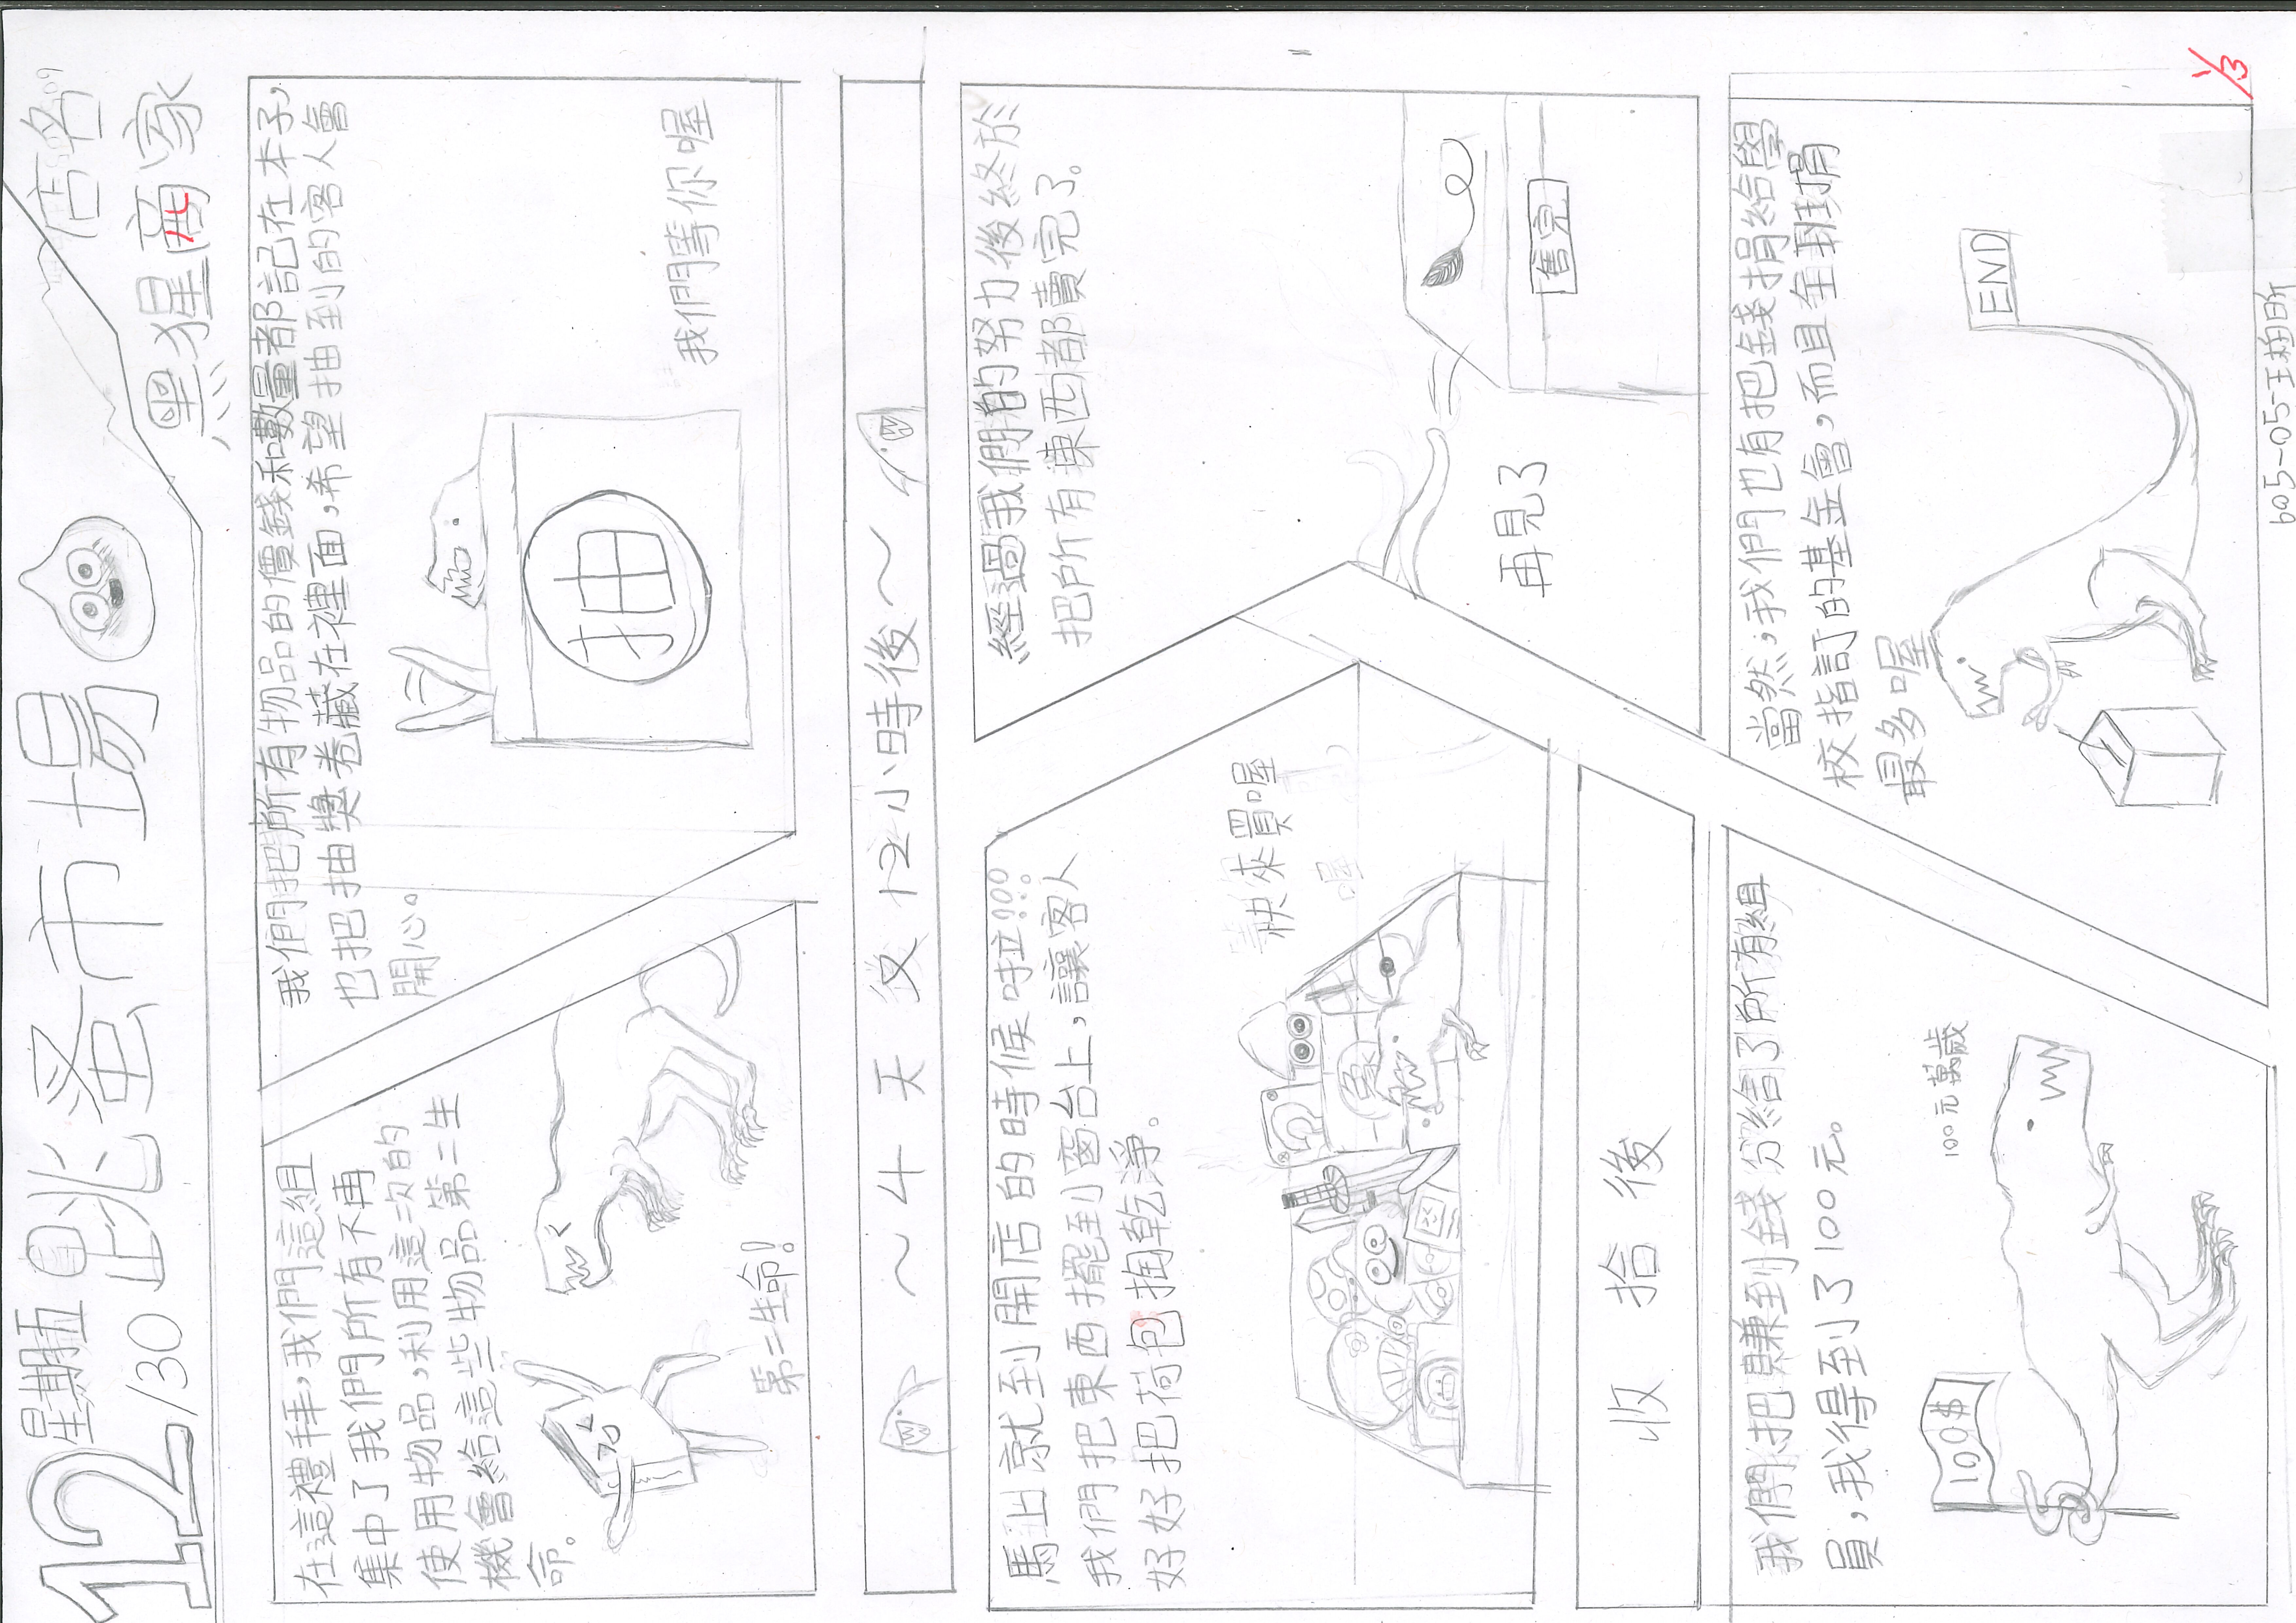 12/30
星期五
跳蚤市場
店名
黑猩商家
在這禮拜,我們這組
集中了我們所有不再
使用物品,利用這次的
機會給這些物品第二生
命。
第二生命!
我們把所有物品的價錢和數量都記在本子,
也把抽獎卷藏在裡面,希望抽到的客人會
開心。
抽
我們等你喔
~4天後12小時後~
馬上就到開店的時候啦!!!
我們把東西擺到窗台上,讓客人
好好把荷包掏乾淨。
快來買喔
經過我們的努力後終於
把所有東西都賣完了。
售完
再見了
收拾後
我們把賺到錢分給了所有組
員,我得到了100元。
100元萬歲
100$
當然,我們也有把錢捐給學
校指訂的基金會,而且全班捐
最多喔
END
1/3